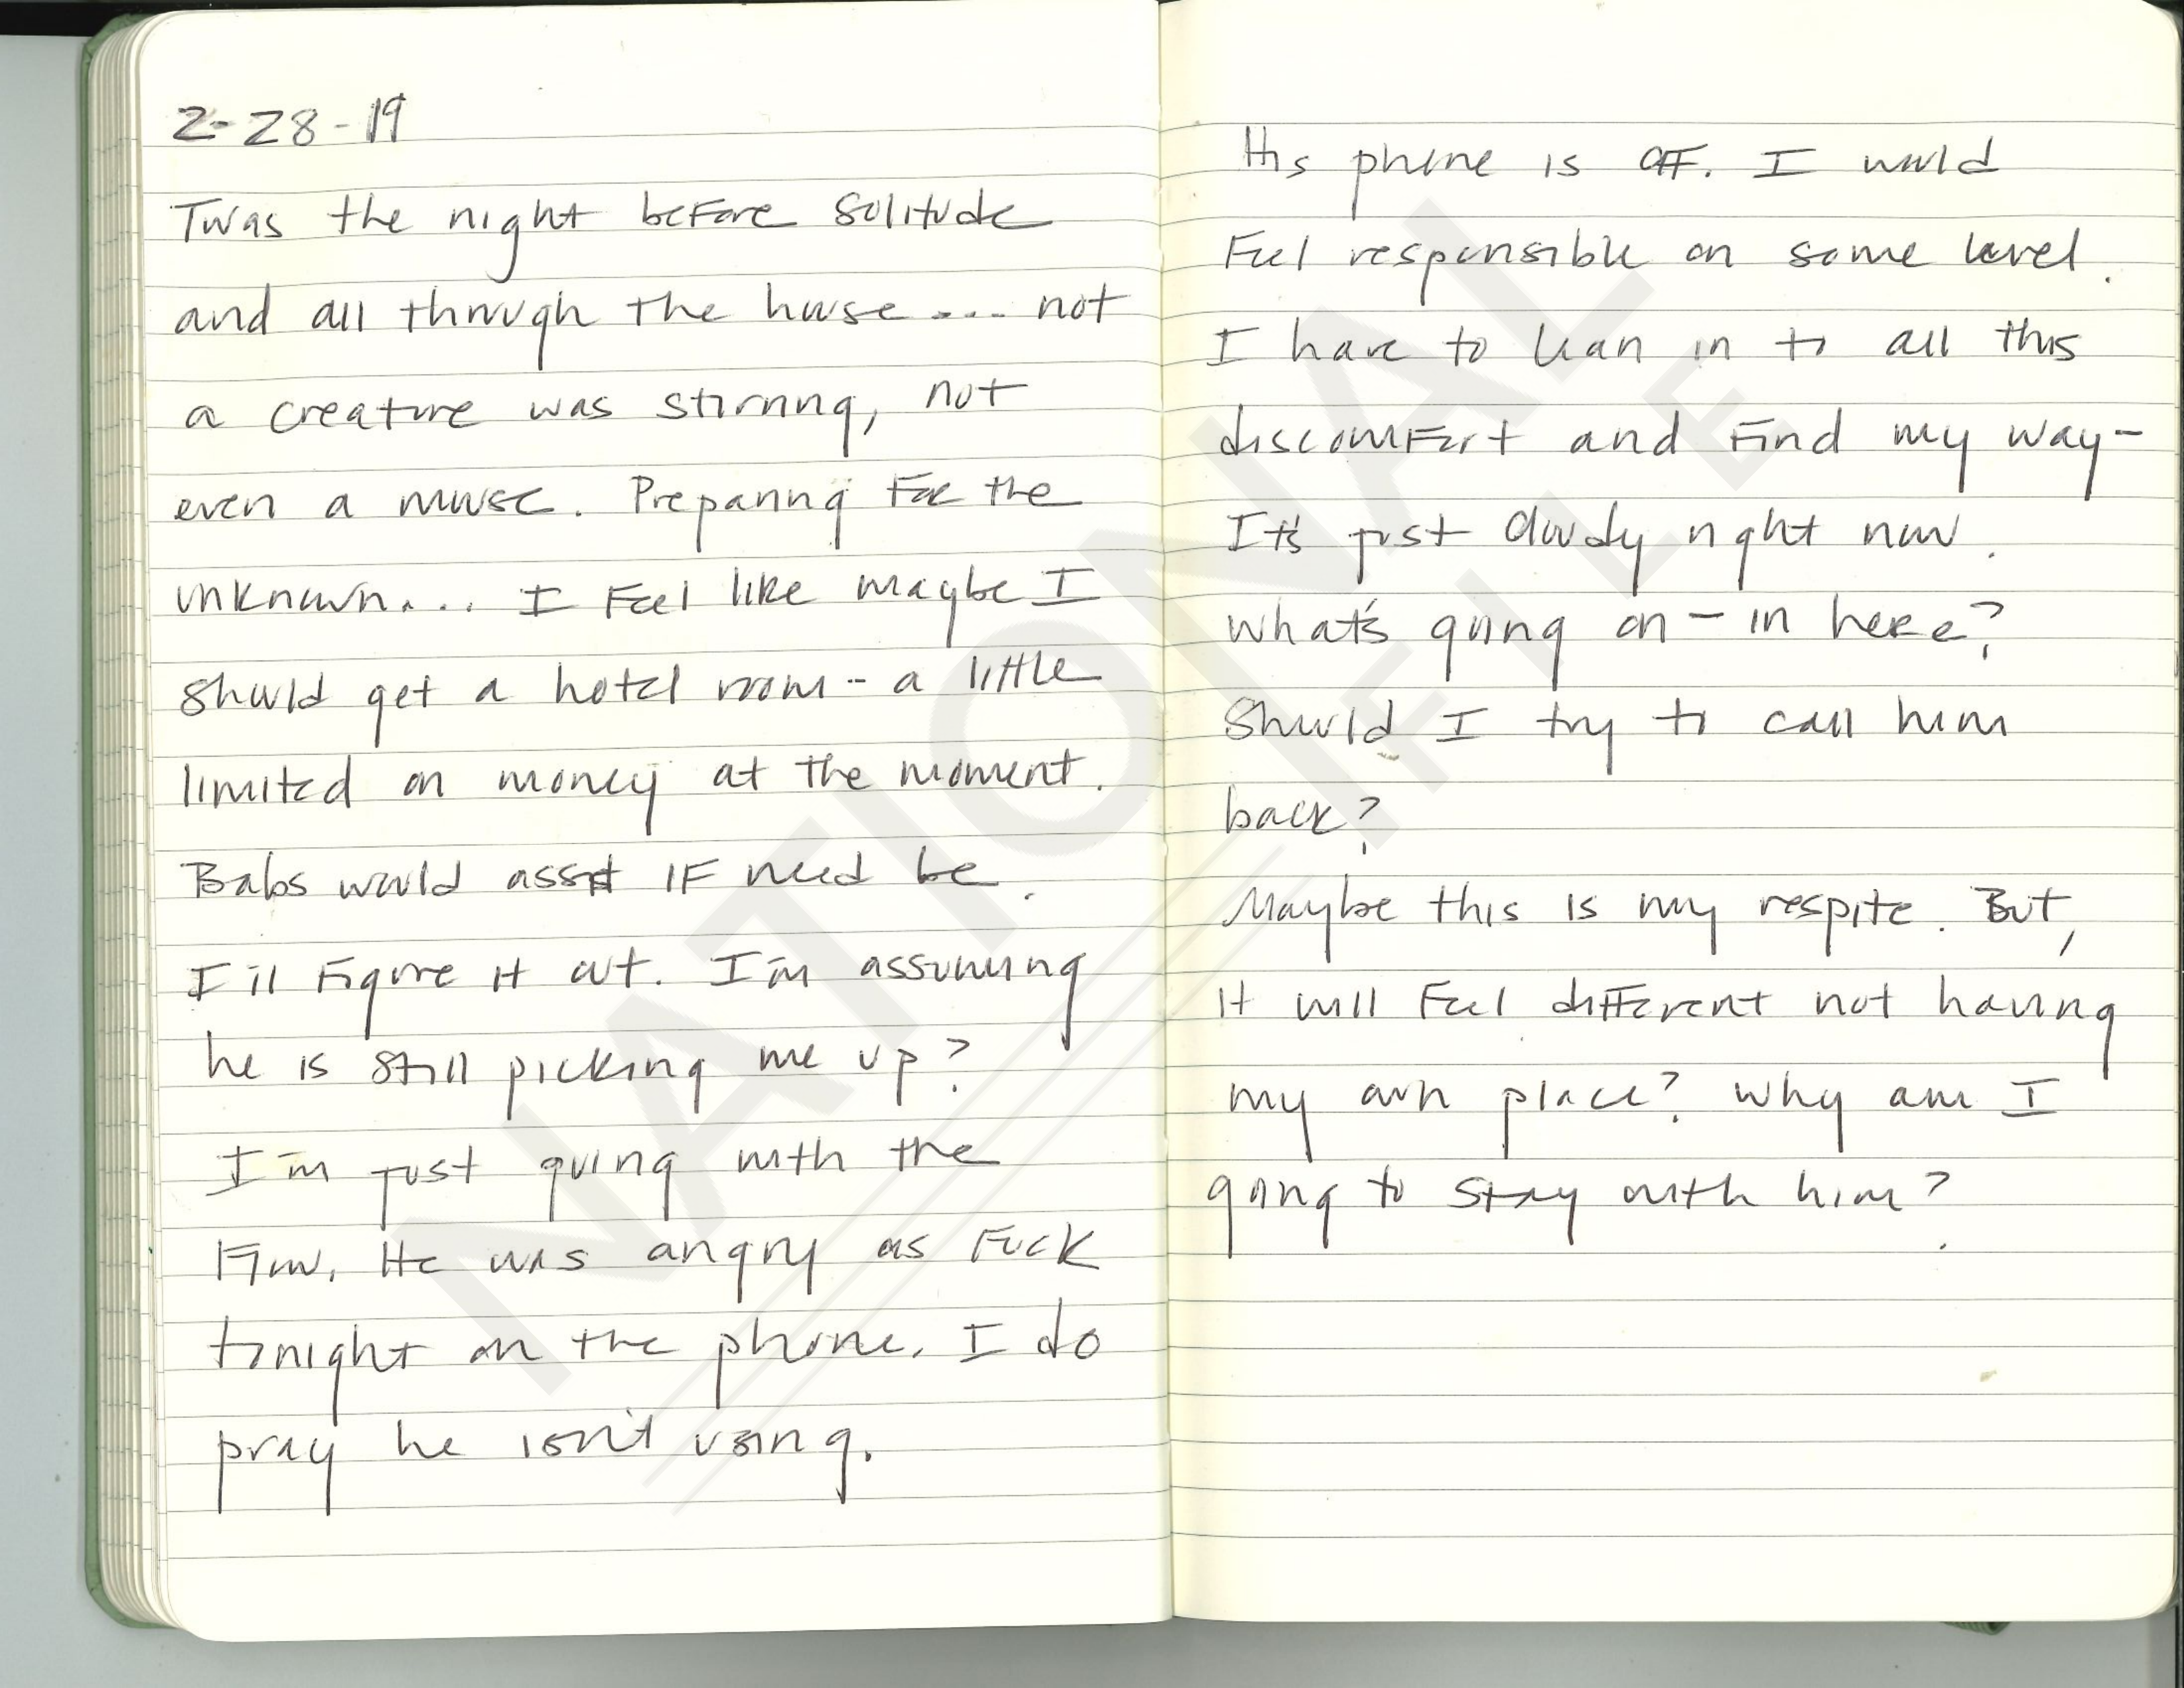 2-28-19
Twas the night before solitude
and all through the house.... not
a creature was stirring, not
even a mouse. Preparing for the
unknown.... I feel like maybe I
should get a hotel room - a little
limited on money at the moment.
Babs would assist if need be.
I'll figure it out. I'm assuming
he is still picking me up?
I'm just going with the
flow. He was angry as fuck
tonight on the phone. I do
pray he isn't using.
His phone is off. I would
feel responsible on some level.
I have to lean in to all this
discomfort and find my way-
It's just cloudy right now.
what's going on - in here?
Should I try to call him
back?
Maybe this is my respite. But,
it will feel different not having
my own place? Why am I
going to stay with him?
NATIONAL
FILE